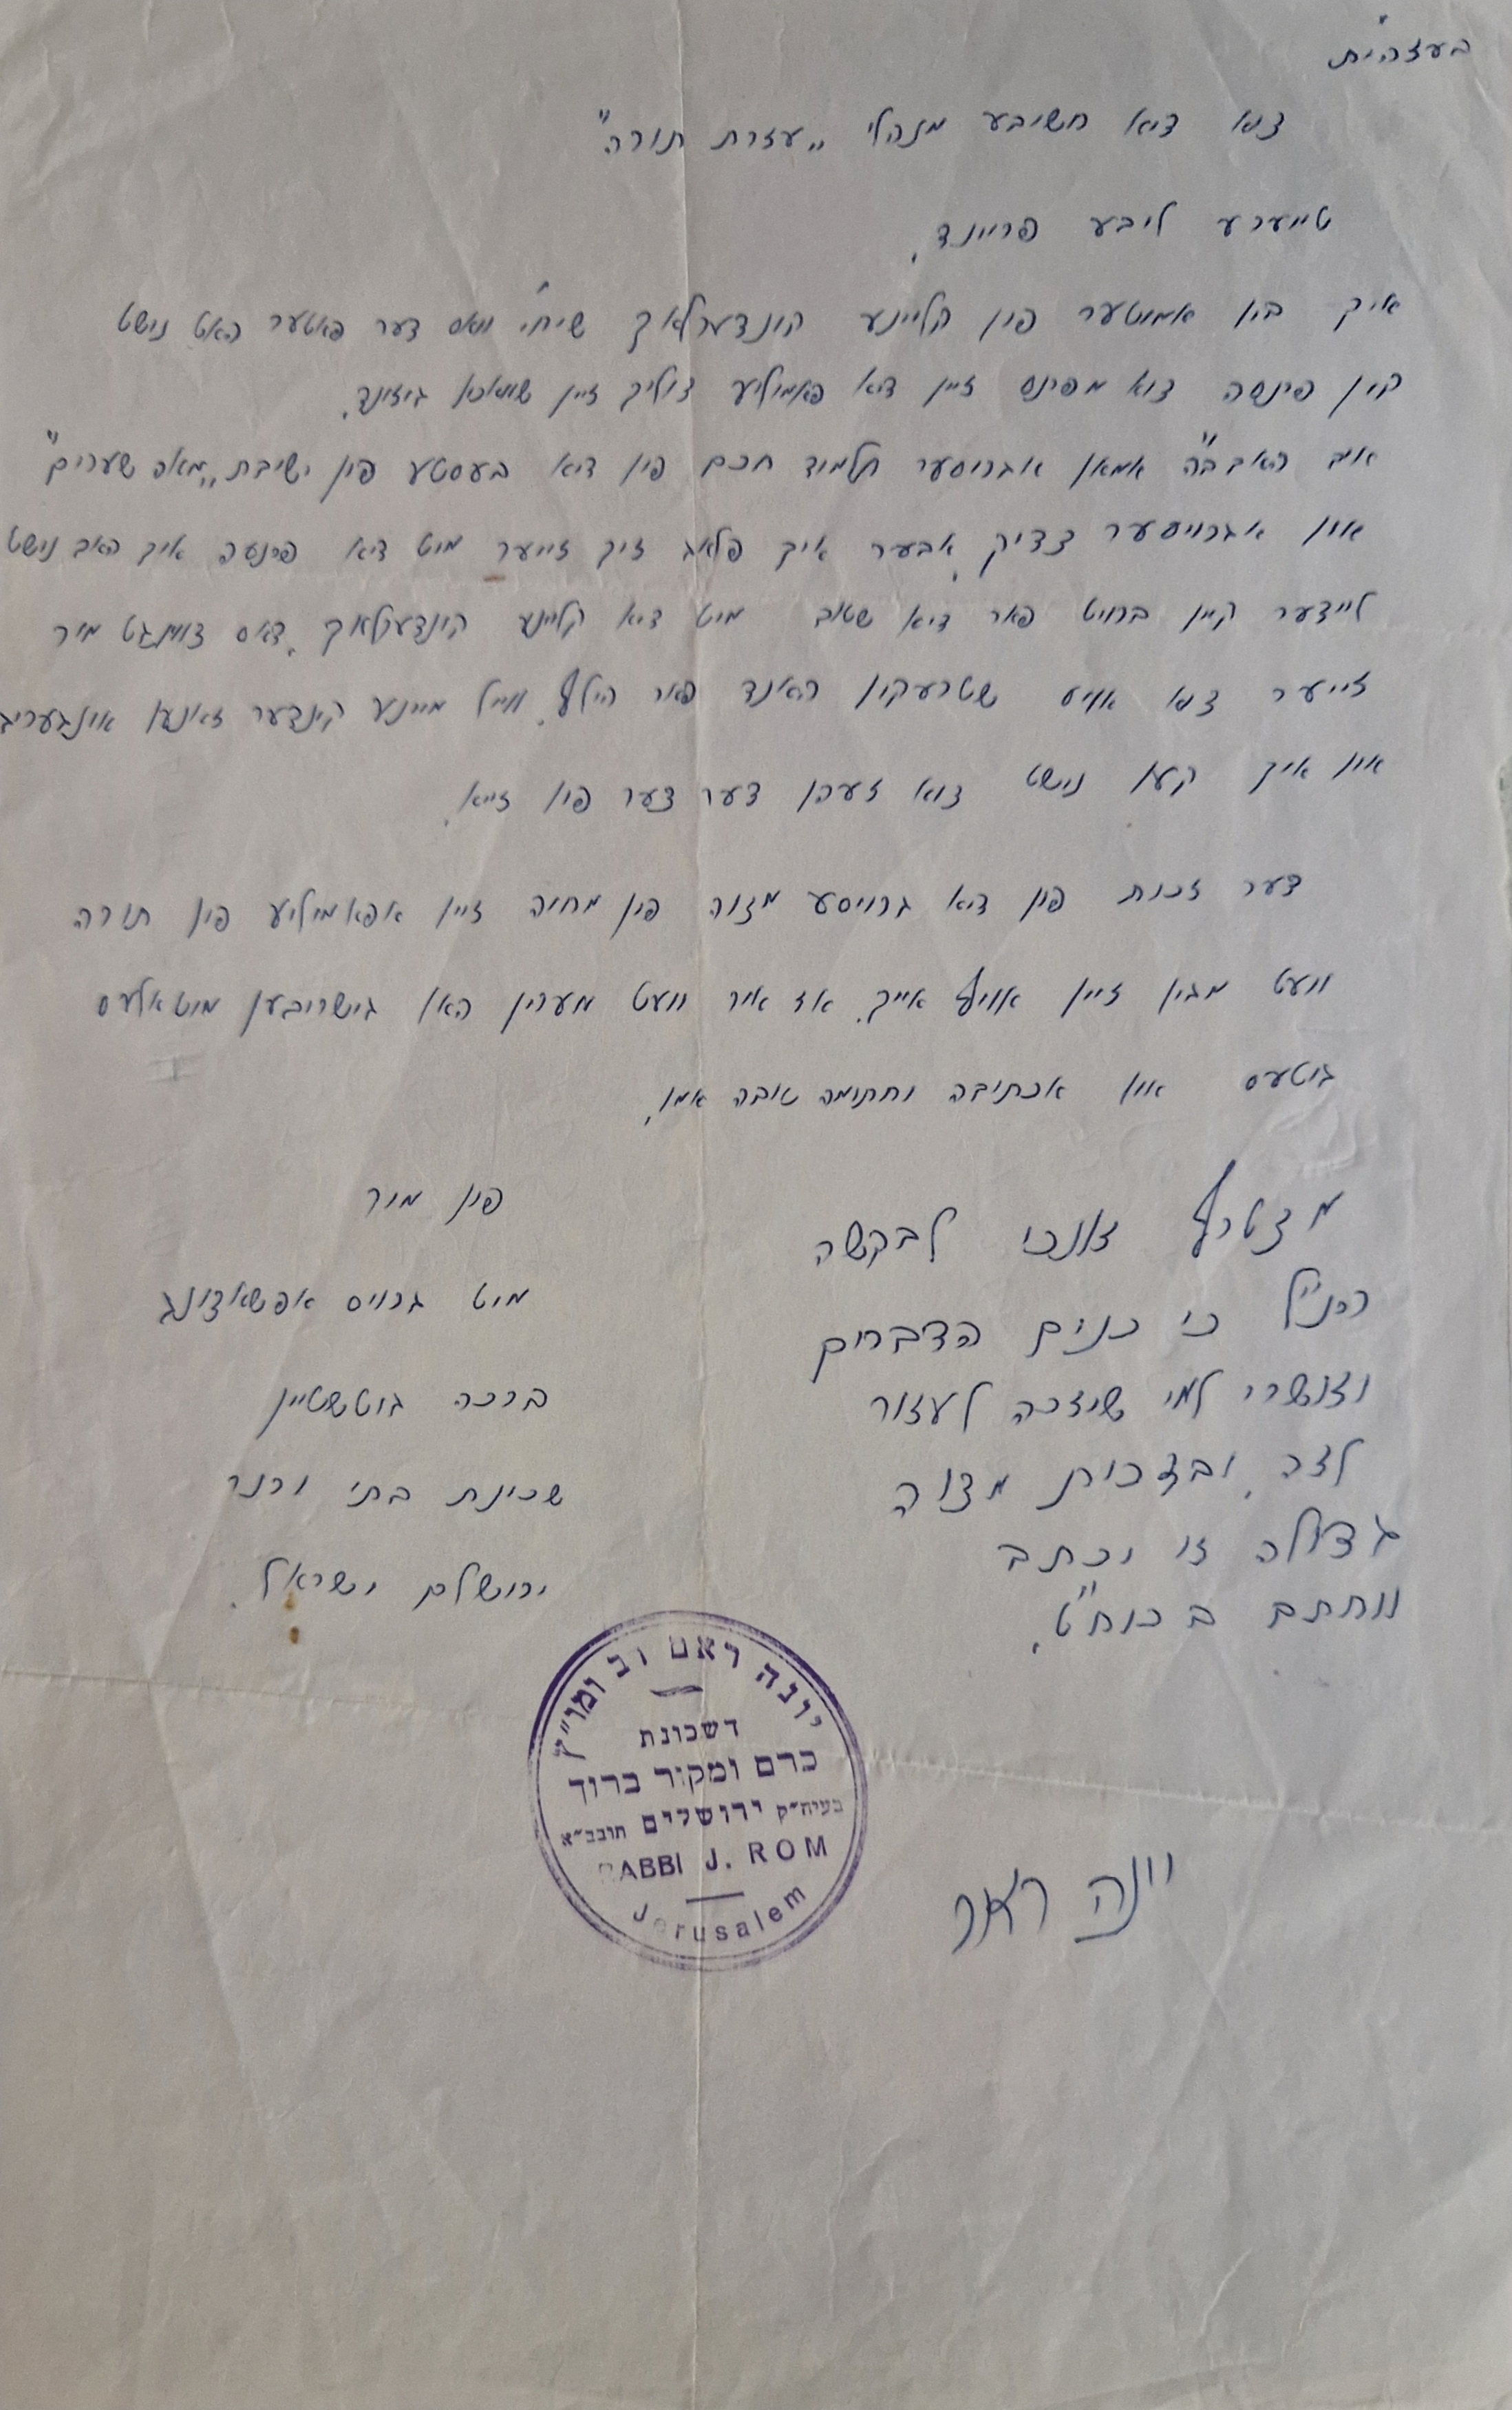 בעזהי"ת
צוא דיא חשיבע מנהלי „עזרת תורה"
טייערע ליבע פריינד.
איך בין אמוטער פון קליינע קונדערלאך שיחי' וואס דער פאטער האט נישט
קין פרנסה צוא מפרנס זיין דיא פאמיליע צוליב זיין שוואכא גיזונד.
איב האב ב"ה אמאן אגרויסער תלמיד חכם פין דיא בעסטע פון ישיבת „מאה שערים"
אוין אגרויסער צדיק, אבער איך פלאג זיך זייער מיט דיא פרנסה איך האב נישט
ליידער קיין ברויט פאר דיא שטוב מיט דיא קליינע קינדערלאך. דאס צווינגט מיר
זייער צוא אויס שטרעקין האנד פאר הילף. ווייל מיינע קינדער זאנען אונגעריג
אין איך קען נישט צוא זעהן דער צער פין זייא.
דער זכות פון דיא גרויסע מצוה פון מחיה זיין אפאמיליע פין תורה
וועט מגין זיין אויף אייך. אז איר וועט מערין האן גישריבען מיט אלעס
גוטעס אוין אכתיבה וחתומה טובה אמן.
פין מיר
מיט גרויס אפשאצונג
ברכה גוטשטיין
שכינת בתי ורנר
ירושלים ישראל.
מצטרף אנכי לבקשה
הנ"ל כי כנים הדברים
ואשרי למי שיזכה לעזור
לזה, ובזכות מצוה
גדולה זו יכתב
ויחתם בכוח"ט.
יונה ראם
יונה ראם רב ומו"ץ
דשכונת
כרם ומקור ברוך
בעיה"ק ירושלים תובב"א
RABBI J. ROM
Jerusalem